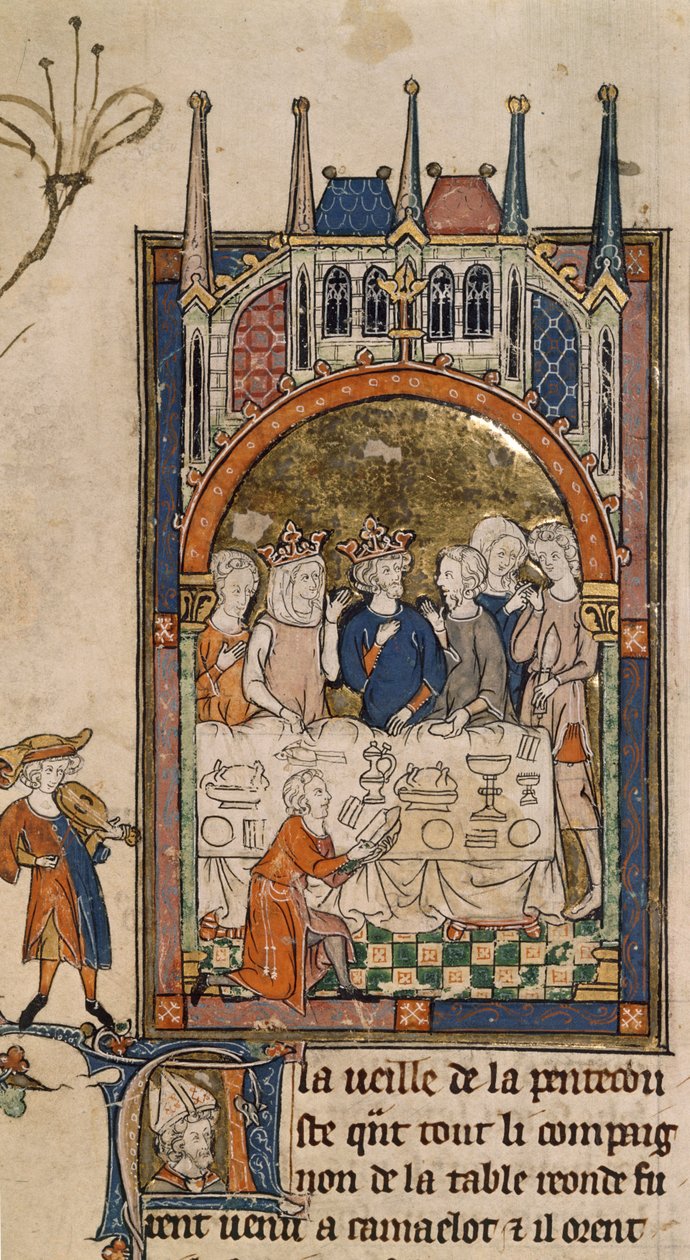 la ueille de la pentecou
ste qnt tout li compaig
non de la table reonde fu
rent uenu a camaelot ⁊ il orent